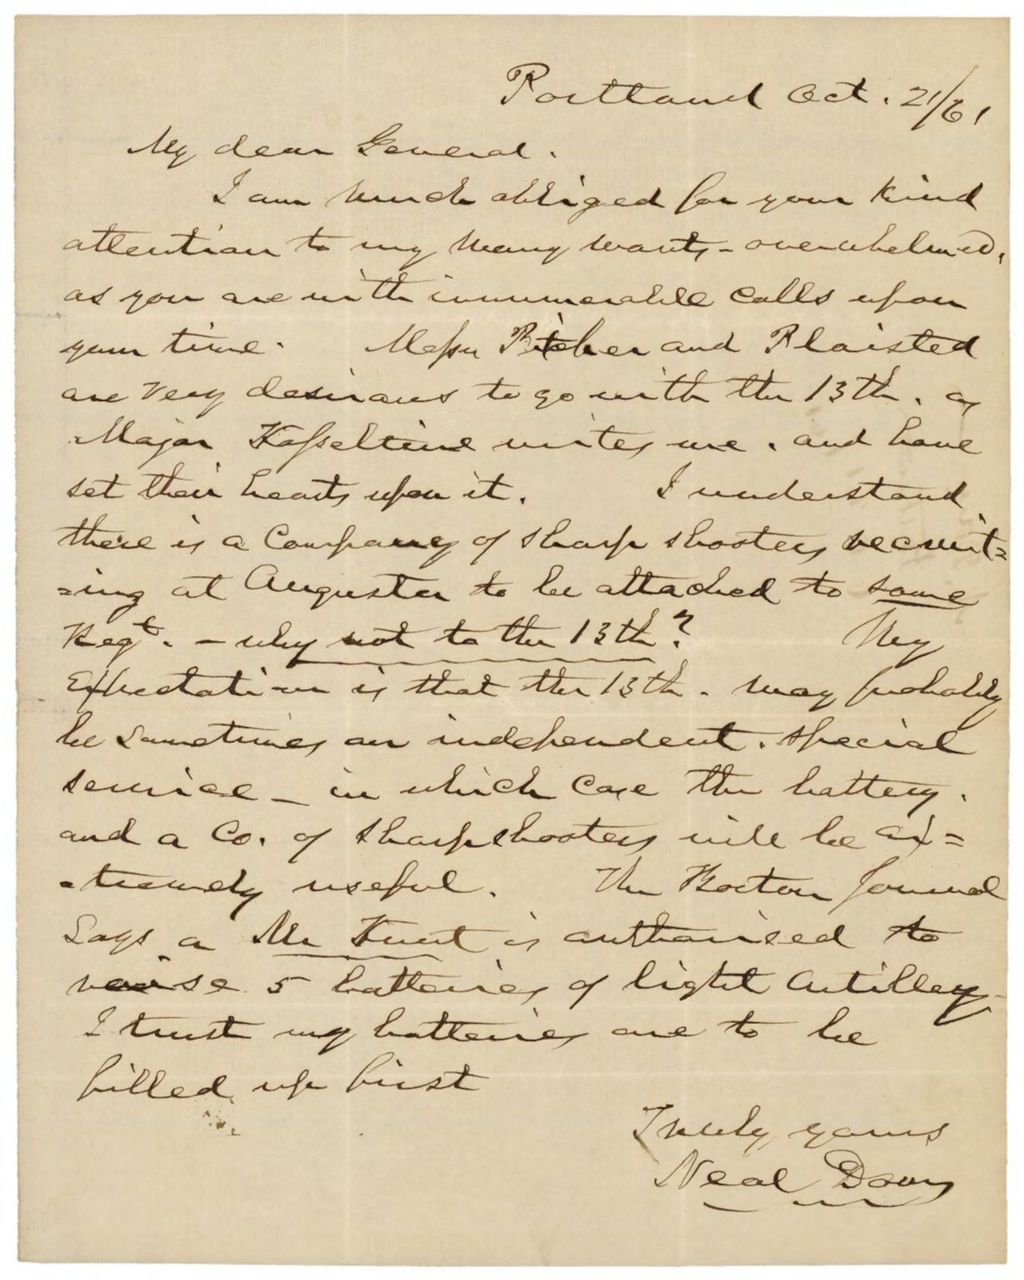 Portland Oct. 21/61
My dear General.
I am much obliged for your kind
attention to my many wants - overwhelmed,
as you are with innumerable calls upon
your time. Messrs Pitcher and Plaisted
are very desirous to go with the 13th. as
Major Hesseltine writes me. and have
set their hearts upon it. I understand
there is a Company of sharp shooters recruit=
=ing at Augusta to be attached to some
Regt. - why not to the 13th? My
Expectation is that the 13th. may probably
be sometimes on independent. special
service - in which case the battery.
and a Co. of sharpshooters will be ex=
=tremely useful. The Boston Journal
says a Mr is authorised to
raise 5 batteries of light Artillery
I trust my batteries are to be
filled up first
Truly yours
Neal Dow